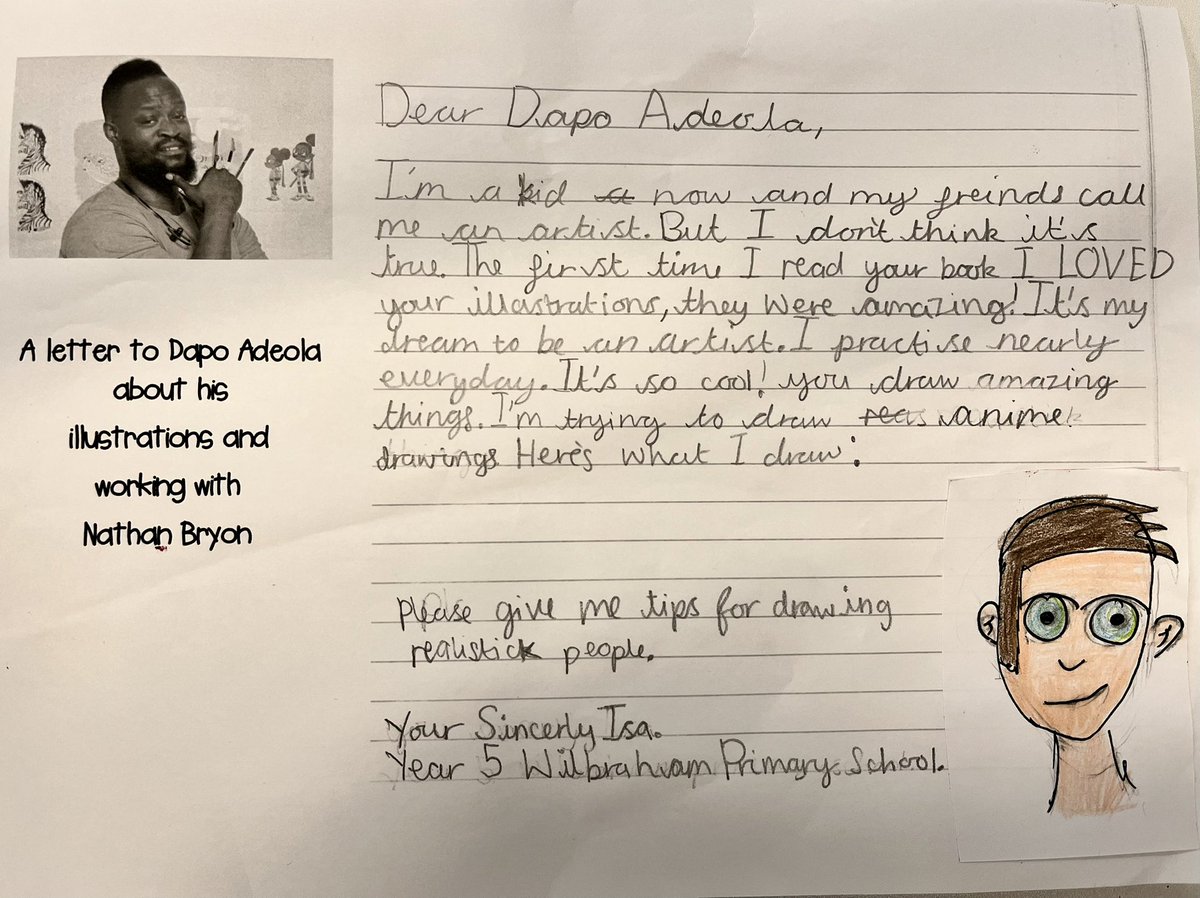 A letter to Dapo Adeola
about his
illustrations and
working with
Nathan Bryon
Dear Dapo Adeola,
I'm a kid a now and my freinds call
me an artist. But I don't think it's
true. The first time I read your book I LOVED
your illastrations, they were amazing! It's my
dream to be an artist. I practise nearly
everyday. It's so cool! you draw amazing
things. I'm trying to draw reas anime
drawings Here's what I draw:
please give me tips for drawing
realistick people.
Your Sincerly Isa.
Year 5 Wilbraham Primary School.